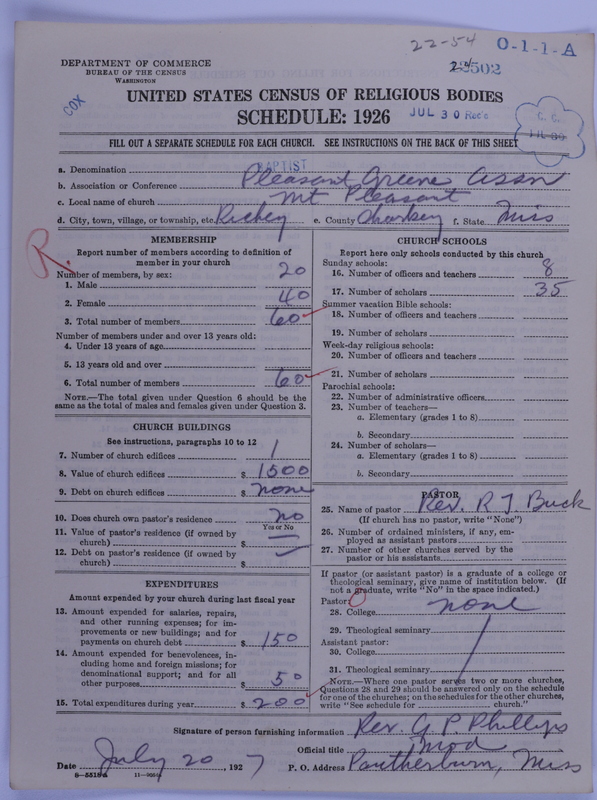 22-54 O-1-1-A
DEPARTMENT OF COMMERCE
BUREAU OF THE CENSUS
WASHINGTON
COX
UNITED STATES CENSUS OF RELIGIOUS BODIES
SCHEDULE: 1926
JUL 30 Rec'c
FILL OUT A SEPARATE SCHEDULE FOR EACH CHURCH. SEE INSTRUCTIONS ON THE BACK OF THIS SHEET
a. Denomination BAPTIST
b. Association or Conference Pleasant Greene Assn
c. Local name of church Mt Pleasant
d. City, town, village, or township, etc. Richey e. County Sharkey f. State Miss
R.
MEMBERSHIP
Report number of members according to definition of
member in your church
Number of members, by sex:
1. Male 20
2. Female 40
3. Total number of members 60
Number of members under and over 13 years old:
4. Under 13 years of age
5. 13 years old and over
6. Total number of members 60
NOTE.—The total given under Question 6 should be the
same as the total of males and females given under Question 3.
CHURCH BUILDINGS
See instructions, paragraphs 10 to 12
7. Number of church edifices 1
8. Value of church edifices $ 1500
9. Debt on church edifices $ none
10. Does church own pastor's residence no
Yes or No
11. Value of pastor's residence (if owned by
church) $
12. Debt on pastor's residence (if owned by
church) $
EXPENDITURES
Amount expended by your church during last fiscal year
13. Amount expended for salaries, repairs,
and other running expenses; for im-
provements or new buildings; and for
payments on church debt $ 150
14. Amount expended for benevolences, in-
cluding home and foreign missions; for
denominational support; and for all
other purposes $ 50
15. Total expenditures during year $ 200
CHURCH SCHOOLS
Report here only schools conducted by this church
Sunday schools:
16. Number of officers and teachers 8
17. Number of scholars 35
Summer vacation Bible schools:
18. Number of officers and teachers
19. Number of scholars
Week-day religious schools:
20. Number of officers and teachers
21. Number of scholars
Parochial schools:
22. Number of administrative officers
23. Number of teachers—
a. Elementary (grades 1 to 8)
b. Secondary
24. Number of scholars—
a. Elementary (grades 1 to 8)
b. Secondary
PASTOR
25. Name of pastor Rev. R J Buck
(If church has no pastor, write "None")
26. Number of ordained ministers, if any, em-
ployed as assistant pastors
27. Number of other churches served by the
pastor or his assistants
If pastor (or assistant pastor) is a graduate of a college or
theological seminary, give name of institution below. (If
not a graduate, write "No" in the space indicated.)
Pastor:
28. College none
29. Theological seminary
Assistant pastor:
30. College
31. Theological seminary
NOTE.—Where one pastor serves two or more churches,
Questions 28 and 29 should be answered only on the schedule
for one of the churches; on the schedules for the other churches,
write "See schedule for church."
Signature of person furnishing information Rev. G. P. Phillips
Official title Mod
Date July 20, 1927 P. O. Address Pantherburn, Miss